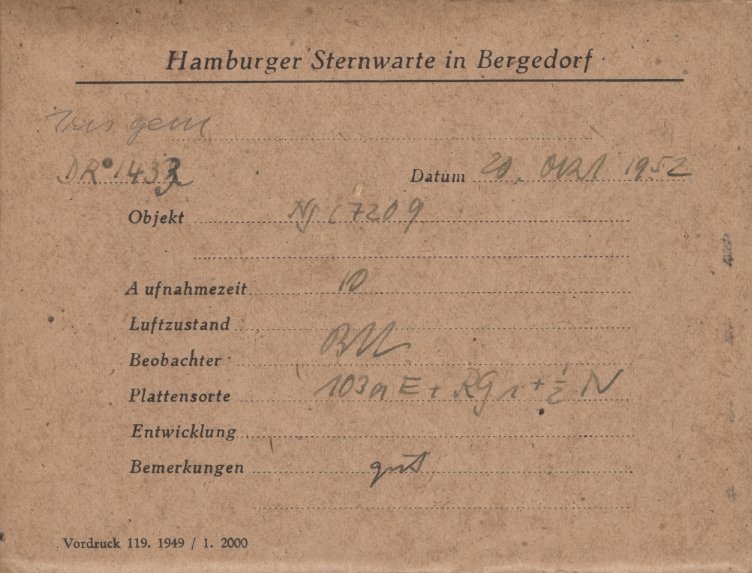 Hamburger Sternwarte in Bergedorf
DR 1433
Datum 20. Okt 1952
Objekt
Aufnahmezeit 10
Luftzustand
Beobachter
Plattensorte 103a E + RG 1 + ½ N
Entwicklung
Bemerkungen gut
Vordruck 119. 1949 / 1. 2000